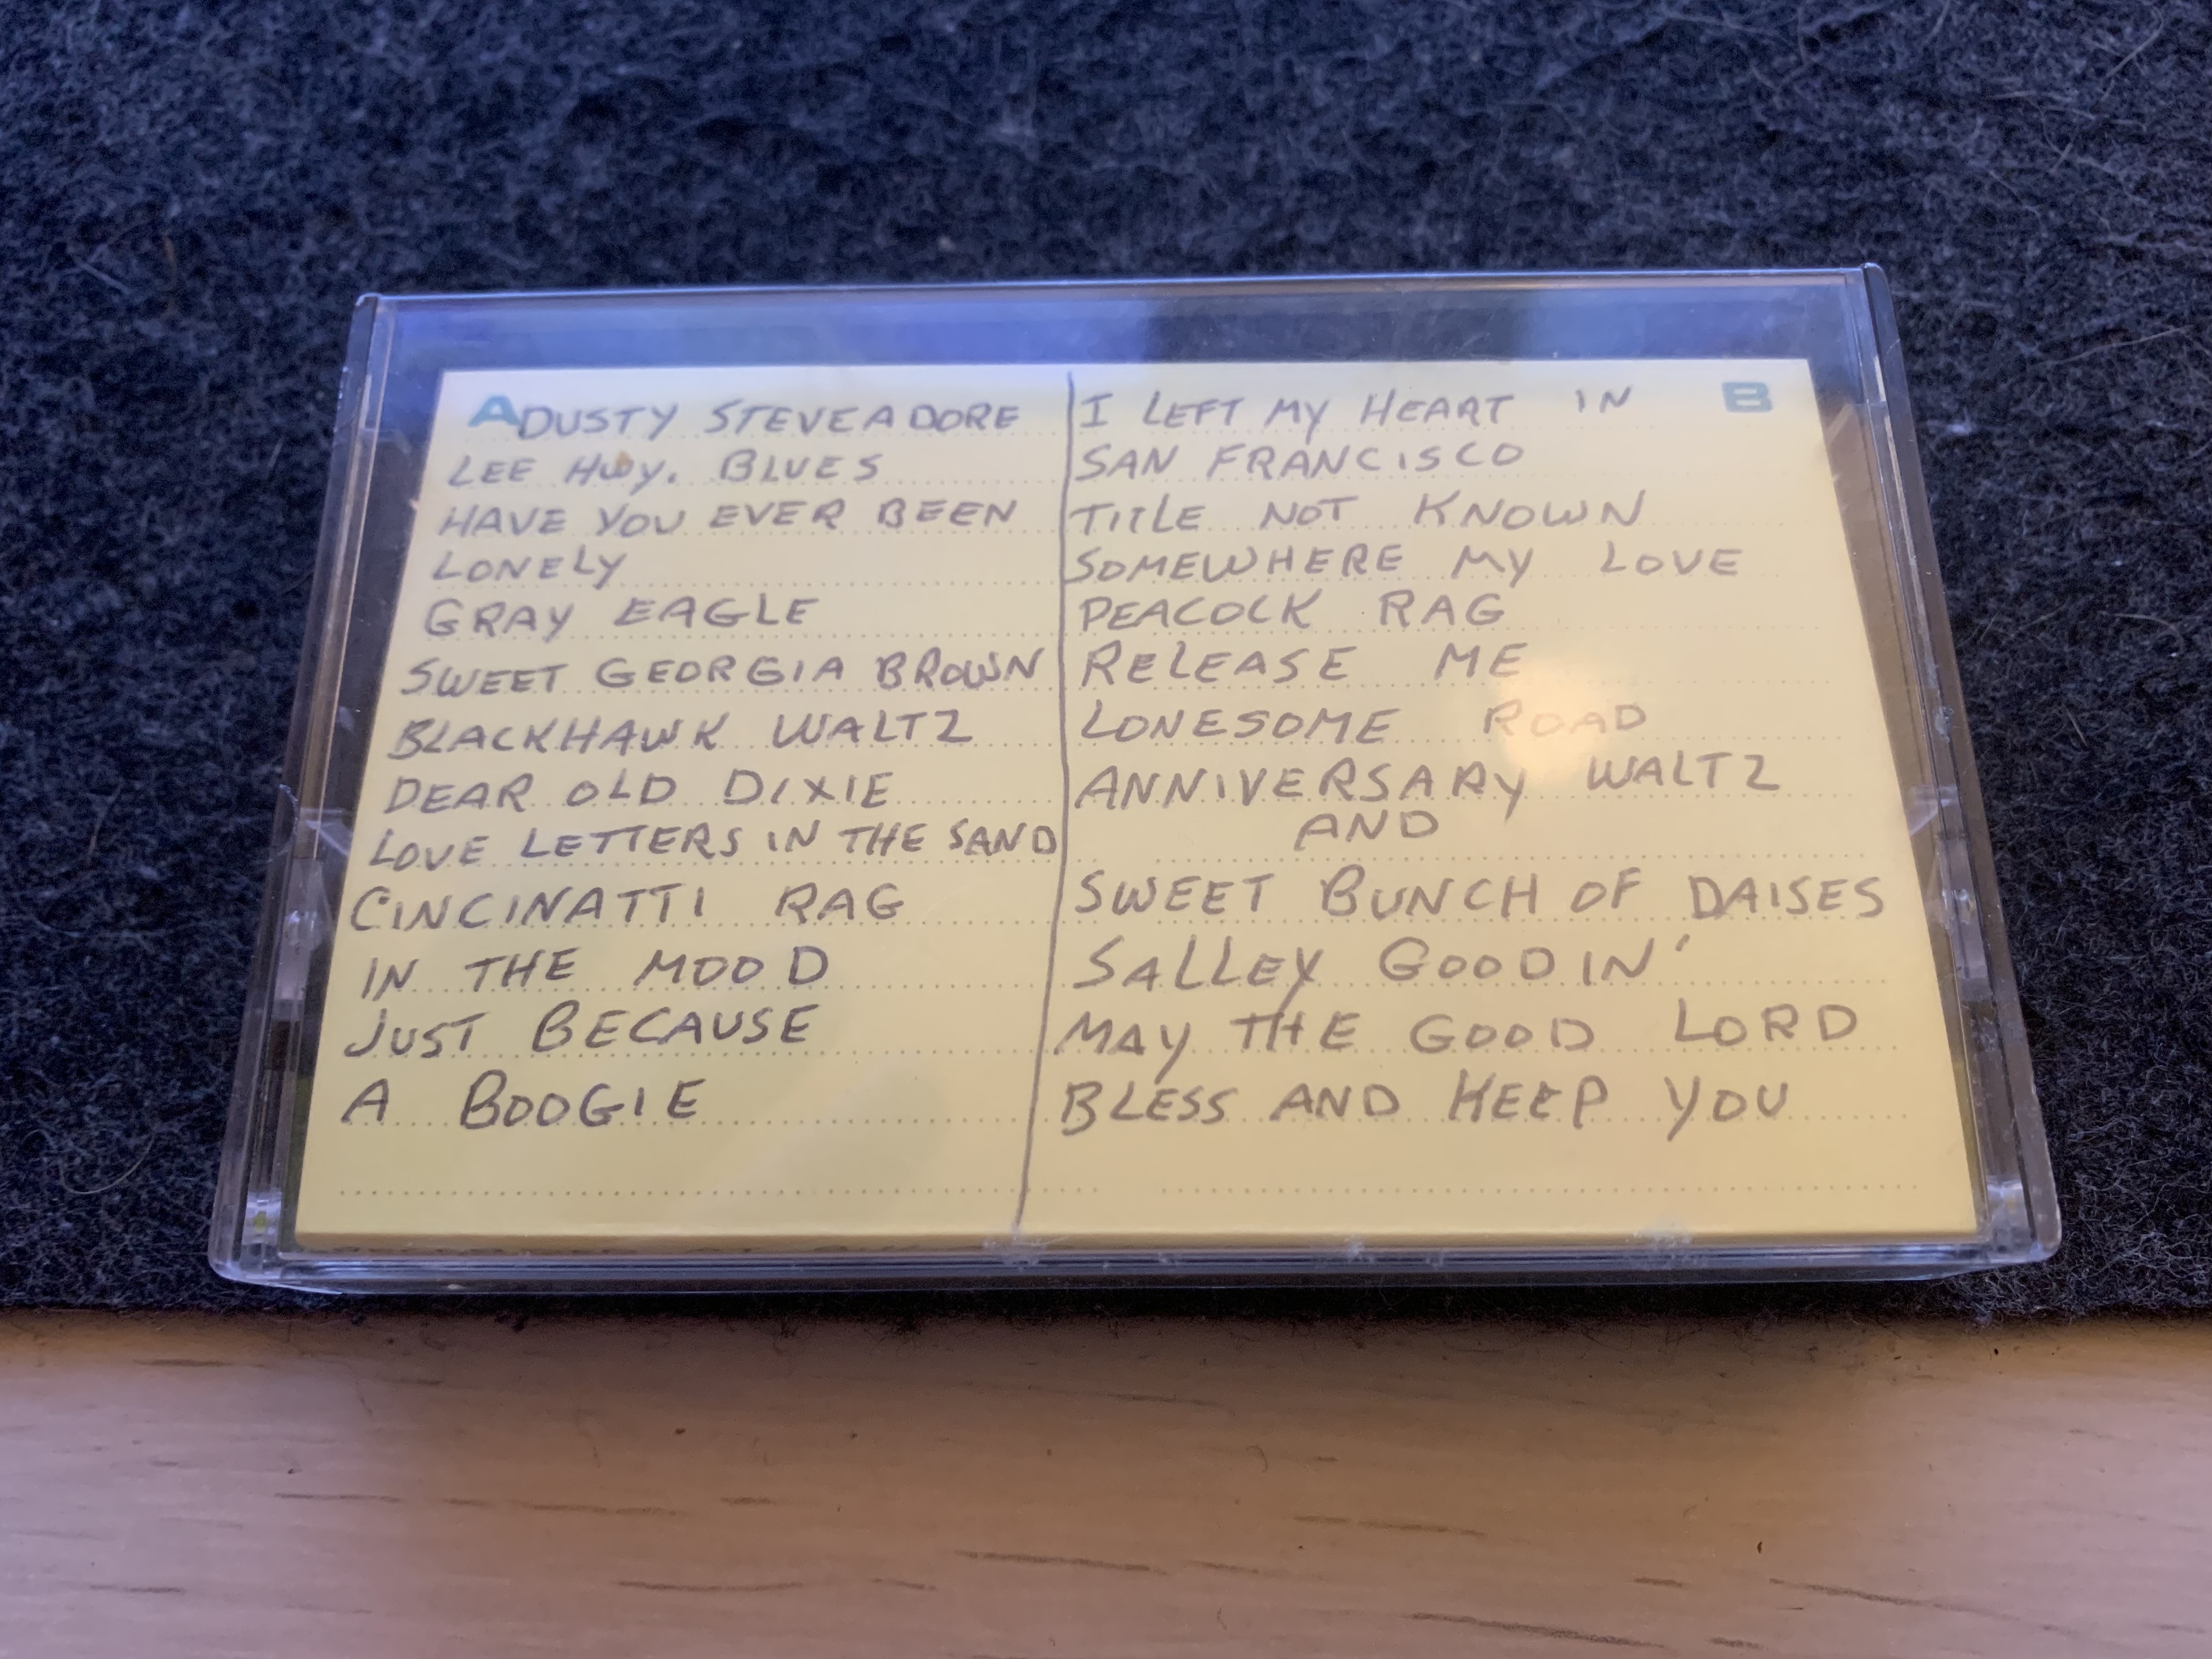 A DUSTY STEVEADORE
LEE HWY. BLUES
HAVE YOU EVER BEEN
LONELY
GRAY EAGLE
SWEET GEORGIA BROWN
BLACKHAWK WALTZ
DEAR OLD DIXIE
LOVE LETTERS IN THE SAND
CINCINATTI RAG
IN THE MOOD
JUST BECAUSE
A BOOGIE
B
I LEFT MY HEART IN
SAN FRANCISCO
TITLE NOT KNOWN
SOMEWHERE MY LOVE
PEACOCK RAG
RELEASE ME
LONESOME ROAD
ANNIVERSARY WALTZ
AND
SWEET BUNCH OF DAISES
SALLEY GOODIN'
MAY THE GOOD LORD
BLESS AND KEEP YOU